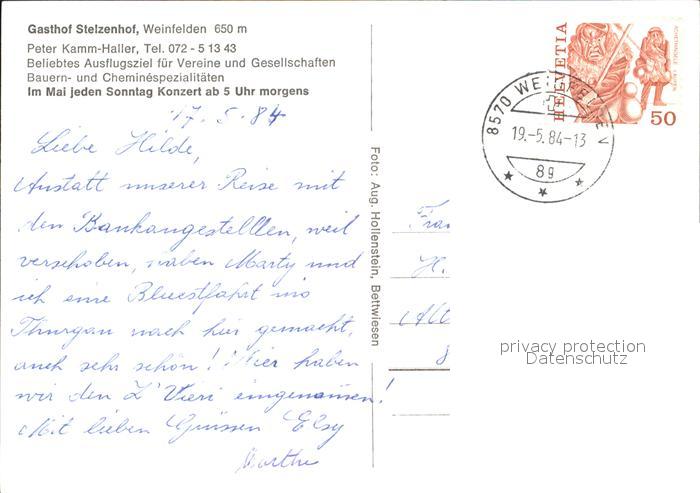 Gasthof Stelzenhof, Weinfelden 650 m
Peter Kamm-Haller, Tel. 072 - 5 13 43
Beliebtes Ausflugsziel für Vereine und Gesellschaften
Bauern- und Cheminéspezialitäten
Im Mai jeden Sonntag Konzert ab 5 Uhr morgens
17. 5. 84
Liebe Hilde,
Anstatt unserer Reise mit
den Bankangestellten, weil
verschoben, haben Marty und
ich eine Bluestfahrt ins
Thurgau nach hier gemacht,
auch sehr schön! Hier haben
wir den Z'Vieri eingenomen!
Mit lieben Grüssen Elsy
Marthe
Foto: Aug. Hollenstein, Bettwiesen
HELVETIA
50
8570 WEINFELDEN
19.-5.84-13
8g
Frau
H.
privacy protection
Datenschutz